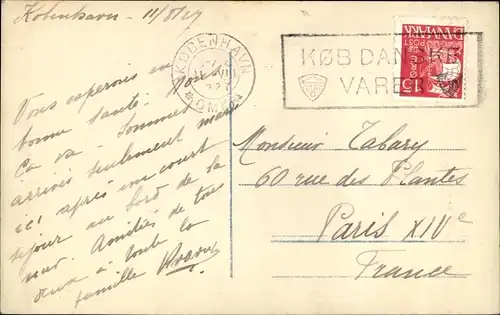 Kobenhavn - 11/8/27
Vous esperons en
bonne santé. Nous
ça va - Sommes
arrivés seulement mardi
ici après une court
sejour au bord de la
mer. Amitiés de tous
deux à toute la
famille
KØBENHAVN
OMK.
KØB DANSKE
VARER
DANMARK
POST
15
Monsieur Tabary
60 rue des Plantes
Paris XIVe
France